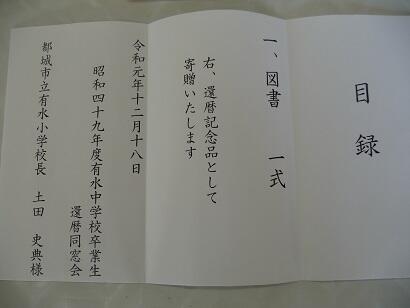 目録
一、図書 一式
右、還暦記念品として
寄贈いたします
令和元年十二月十八日
昭和四十九年度有水中学校卒業生
還暦同窓会
都城市立有水小学校長 土田 史典様